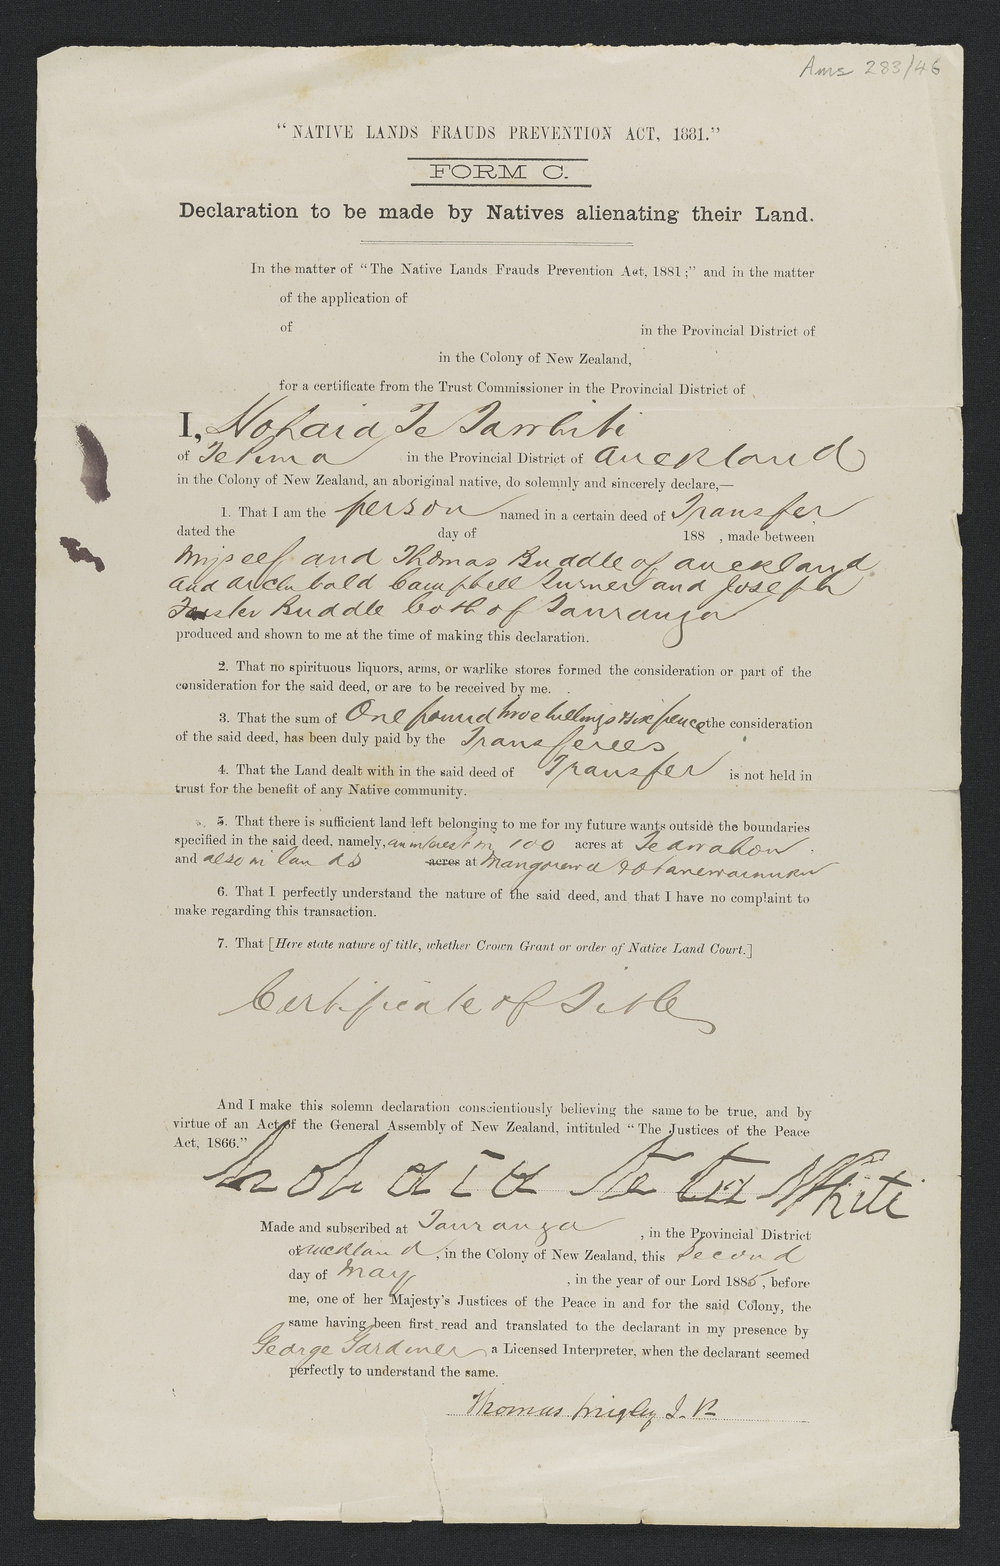 Ams 283/46
“NATIVE LANDS FRAUDS PREVENTION ACT, 1881.”
FORM C.
Declaration to be made by Natives alienating their Land.
In the matter of “The Native Lands Frauds Prevention Act, 1881;” and in the matter
of the application of
of in the Provincial District of
in the Colony of New Zealand,
for a certificate from the Trust Commissioner in the Provincial District of
I, Nohaia Te Tawhiti
of Te Puna in the Provincial District of Auckland
in the Colony of New Zealand, an aboriginal native, do solemnly and sincerely declare,—
1. That I am the person named in a certain deed of Transfer
dated the day of 188 , made between
Myself and Thomas Buddle of Auckland
and Archibald Campbell Turner and Joseph
Foster Buddle both of Tauranga
produced and shown to me at the time of making this declaration.
2. That no spirituous liquors, arms, or warlike stores formed the consideration or part of the
consideration for the said deed, or are to be received by me.
3. That the sum of One pound two shillings & six pence the consideration
of the said deed, has been duly paid by the Transferees
4. That the Land dealt with in the said deed of Transfer is not held in
trust for the benefit of any Native community.
5. That there is sufficient land left belonging to me for my future wants outside the boundaries
specified in the said deed, namely, an interest in 100 acres at
and also in lands acres at
6. That I perfectly understand the nature of the said deed, and that I have no complaint to
make regarding this transaction.
7. That [Here state nature of title, whether Crown Grant or order of Native Land Court.]
Certificate of Title
And I make this solemn declaration conscientiously believing the same to be true, and by
virtue of an Act of the General Assembly of New Zealand, intituled “The Justices of the Peace
Act, 1866.”
Nohaia te ta Whiti
Made and subscribed at Tauranga , in the Provincial District
of Auckland, in the Colony of New Zealand, this Second
day of May , in the year of our Lord 1885, before
me, one of her Majesty’s Justices of the Peace in and for the said Colony, the
same having been first read and translated to the declarant in my presence by
George Gardiner a Licensed Interpreter, when the declarant seemed
perfectly to understand the same.
Thomas Wrigley J.P.